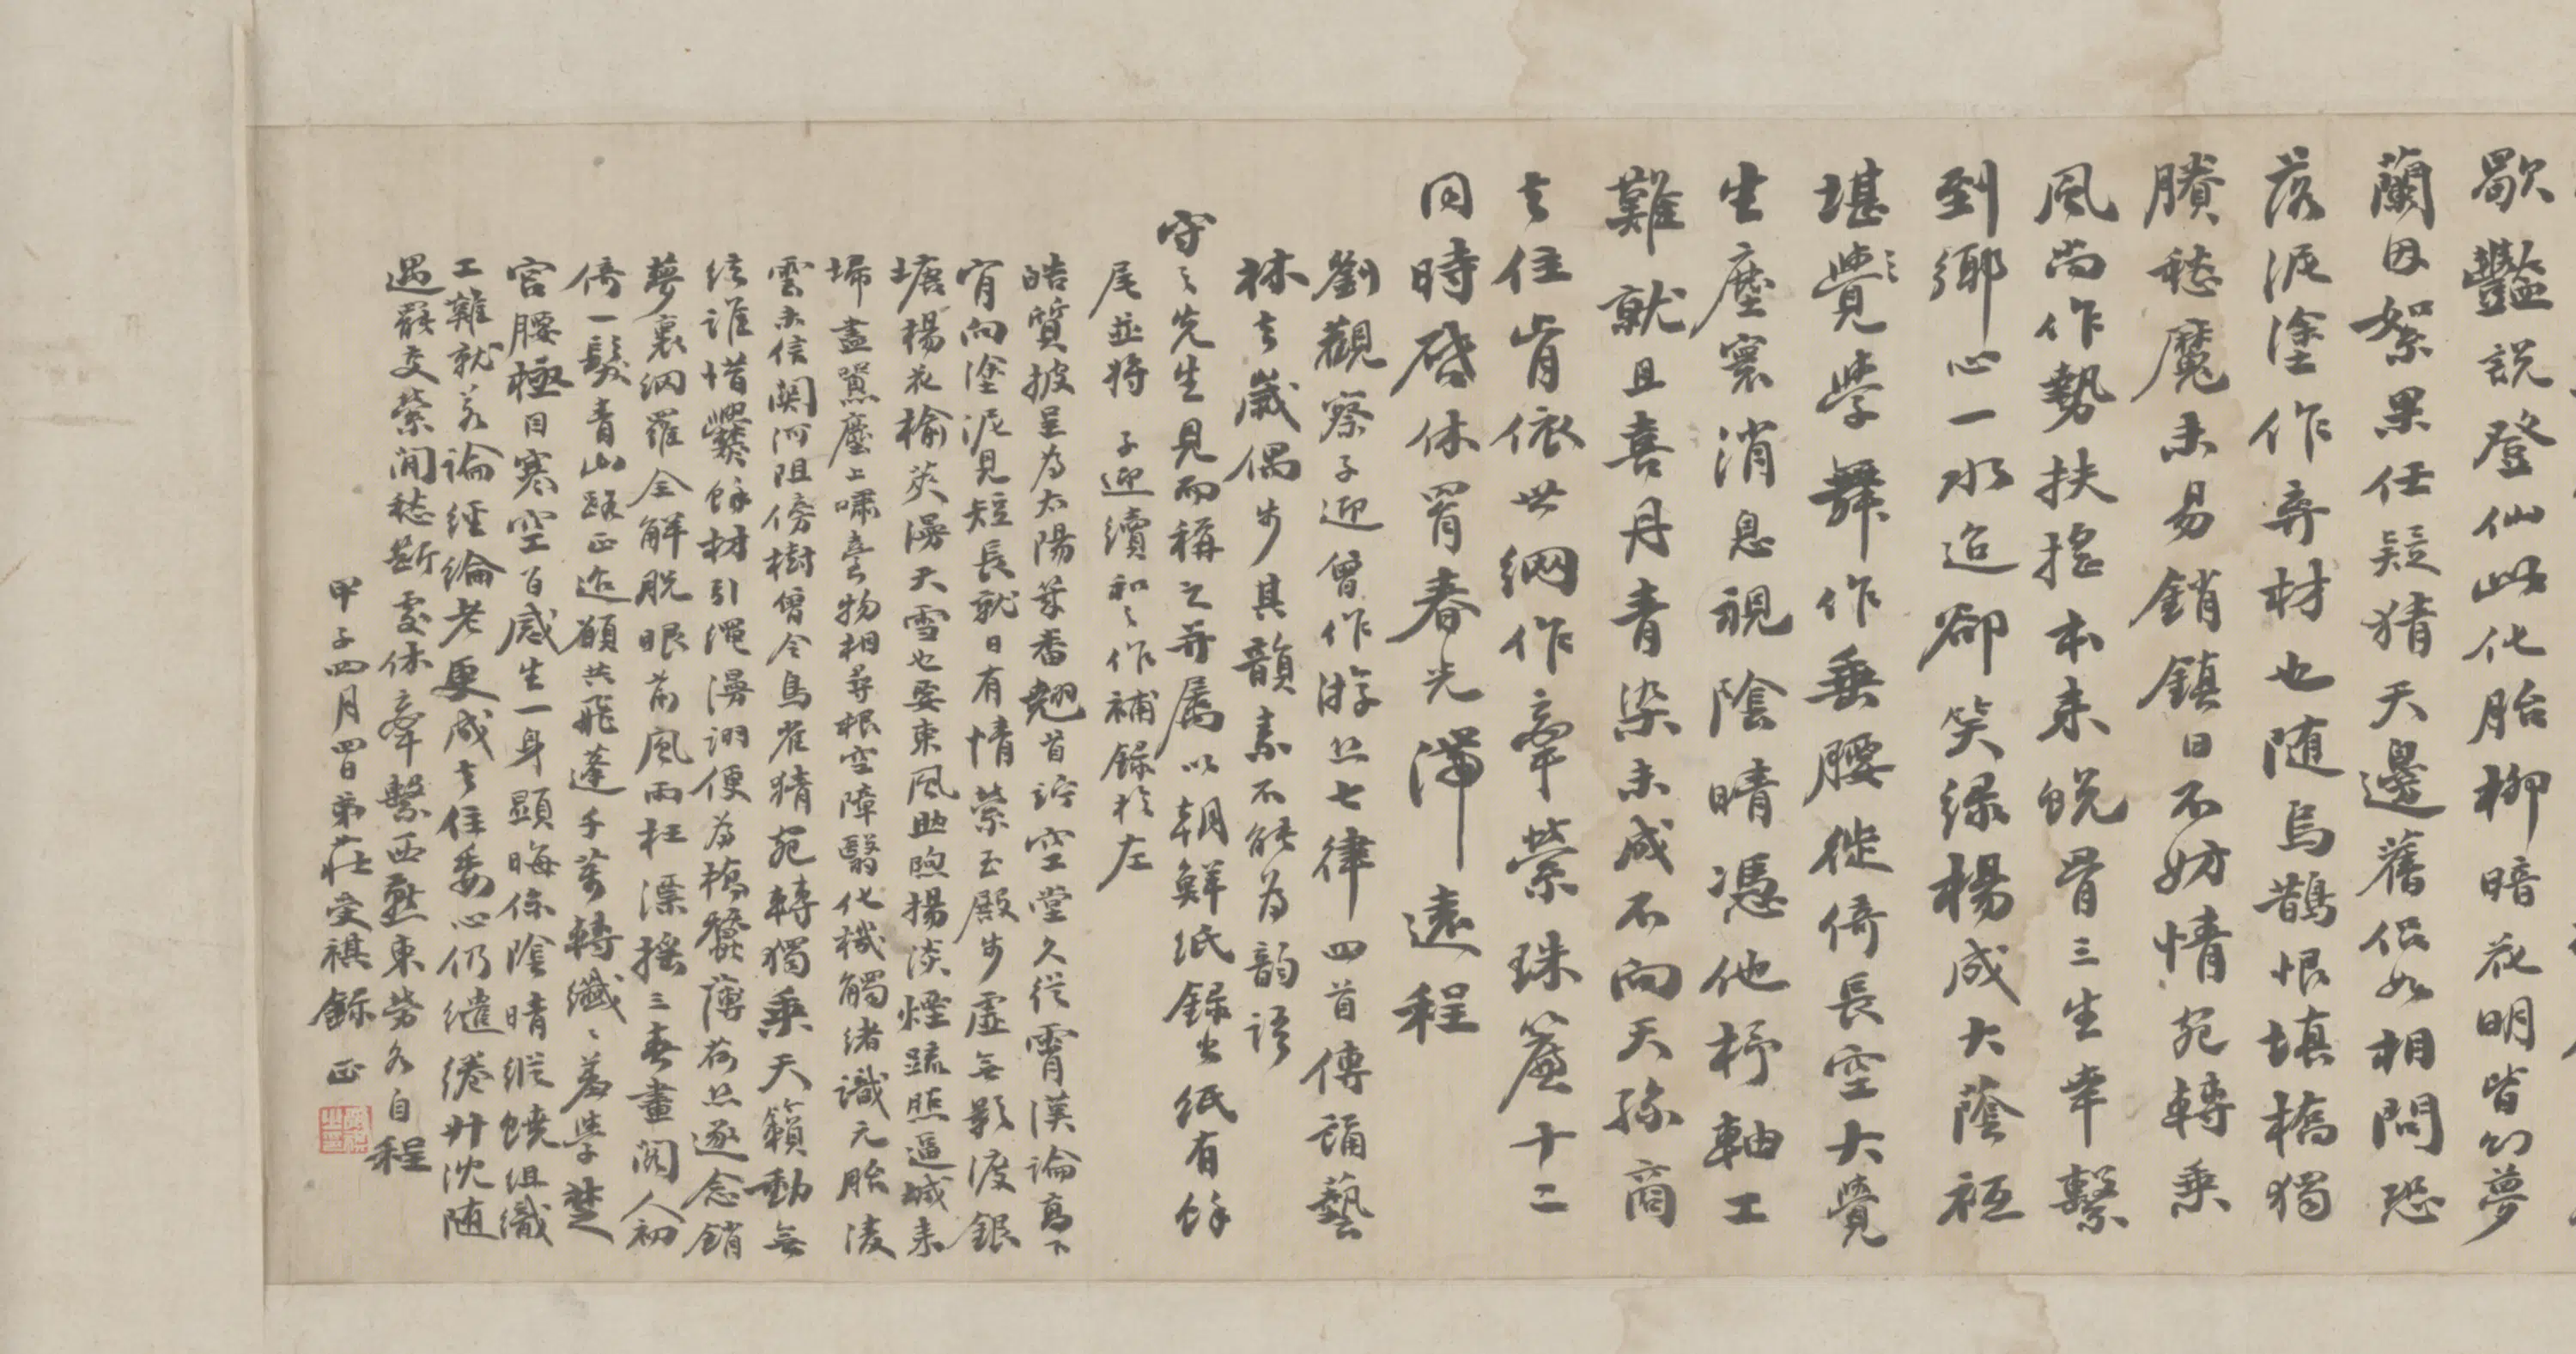 歇豔説登仙此化胎柳暗花明皆幻夢
蘭因絮果任疑猜天邊舊侶如相問恐
落泥塗作弃材也随烏鵲恨填橋獨
賸愁魔未易銷鎮日不妨情宛轉乘
風尚作勢扶搖本来蜕骨三生幸繫
到鄉心一水迢卻笑绿楊成大蔭祗
堪學舞作垂腰徙倚長空大覺
生塵寰消息視陰晴憑他杼軸工
難就且喜丹青染未成不向天孫商
去住肯依世網作牽縈珠簾十二
同時啓休罥春光滞遠程
劉觀察子迎曾作游丝七律四首傳誦藝
林去嵗偶步其韻素不能為韵語
守之先生見而稱之并属以朝鮮紙録出纸有餘
尾並將子迎續和之作補録於左
皓質披呈為太陽葉番翹首詅空堂久從霄漢論高下
肯向塗泥見短長就日有情縈玉殿步虛無影渡銀
塘楊花榆莢漫天雪也要東風助煦揚淡煙疏照逼城来
埽盡囂塵上嘯臺物相尋根空障翳化機觸緒識元胎淩
雲未信関河阻傍樹曾令鳥雀猜宛轉獨乘天籟動無
絃誰惜爨餘材引繩漫詡便為橋蠶薄荷丝逐念銷
夢裏網羅全解脱眼前風雨枉漂摇三春畫閣人初
倚一髮青山路正迢願共飛蓬千萬轉纖纖羞學楚
宫腰極目寒空百感生一身顯晦係陰晴縱饒组織
工難就若論經綸老更成去住委心仍缱绻升沈随
遇罷交縈閒愁斷處休牽繫西燕東勞各自程
甲子四月四日弟莊受祺録正